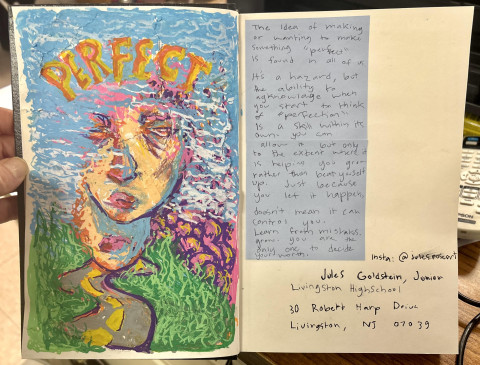 PERFECT
The idea of making
or wanting to make
something "perfect"
is found in all of us
It's a hazard, but
the ability to
acknowledge when
you start to think
of "perfection"
is a skill within its
own. you can
allow it but only
to the extent where it
is helping you grow
rather than beat yourself
up. Just because
you let it happen,
doesn't mean it can
control you.
Learn from mistakes,
grow. you are the
only one to decide
your worth.
Insta:
Jules Goldstein, Junior
Livingston HighSchool
30 Robert Harp Drive
Livingston, NJ 07039